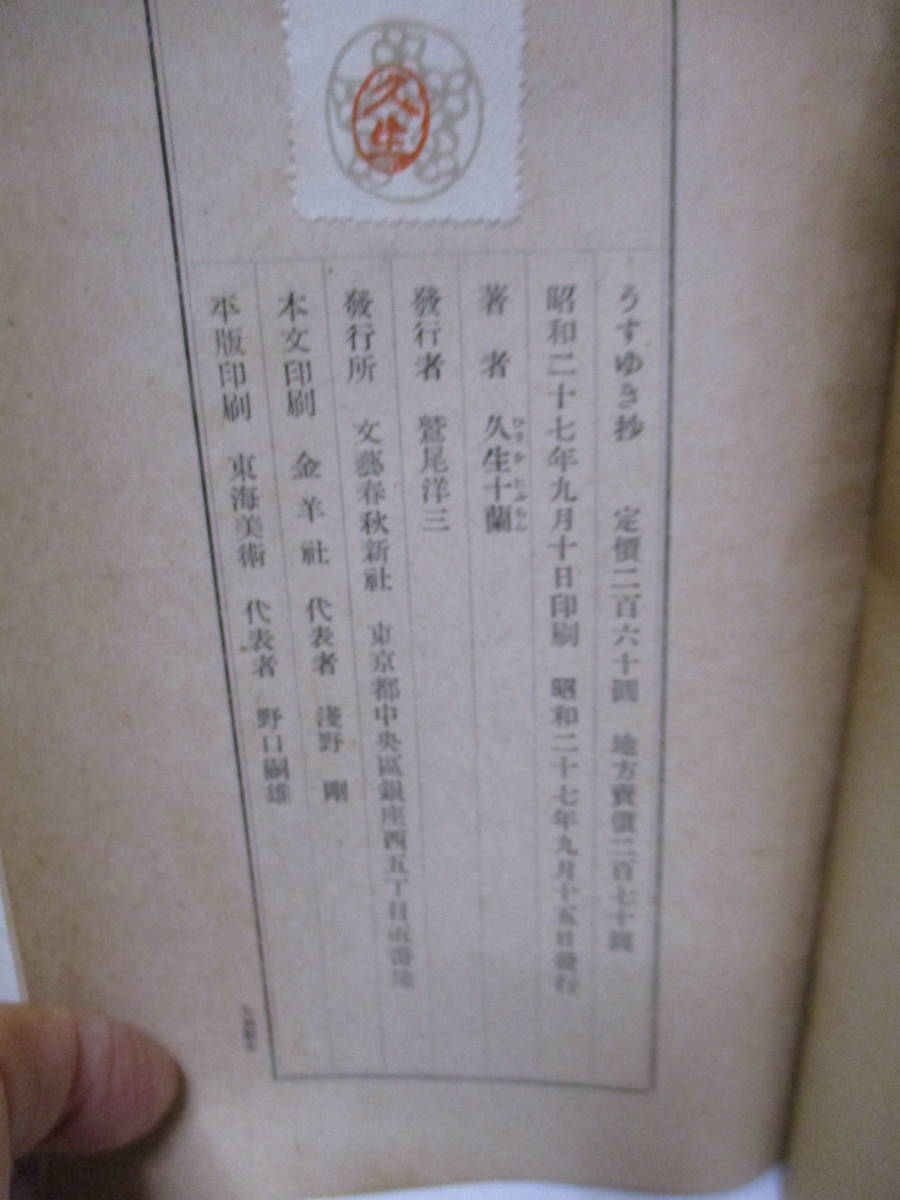 久生
うすゆき抄 定價二百六十圓 地方賣價二百七十圓
昭和二十七年九月十日印刷 昭和二十七年九月十五日發行
著者 久生十蘭
發行者 鷲尾洋三
發行所 文藝春秋新社 東京都中央區銀座西五丁目五番地
本文印刷 金羊社 代表者 淺野剛
平版印刷 東海美術 代表者 野口嗣雄